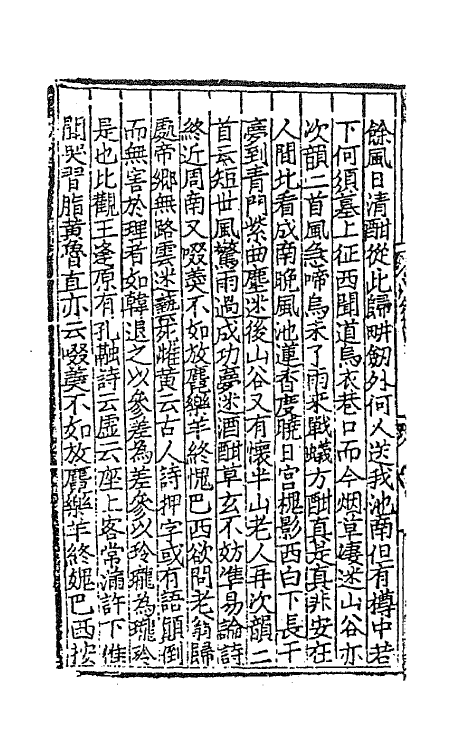 餘風日清酣從此歸畊劒外何人送我池南但有樽中若
下何須墓上征西聞道烏衣巷口而今烟草凄迷山谷亦
次韻二首風急啼烏未了雨來戰蟻方酣真是真非安在
人間北看成南晚風池蓮香度曉日宫槐影西白下長干
夢到青門紫曲塵迷後山谷又有懷半山老人再次韻二
首云短世風驚雨過成功夢迷酒酣草玄不妨準易論詩
終近周南又啜羮不如放麑樂羊終愧巴西欲問老翁歸
處帝鄉無路雲迷藝苑雌黄云古人詩押字或有語顛倒
而無害於理者如韓退之以參差為差參以玲瓏為瓏玲
是也比觀王逢原有孔融詩云虛云座上客常滿許下惟
聞哭習脂黄魯直亦云啜羮不如放麑樂羊終媿巴西按